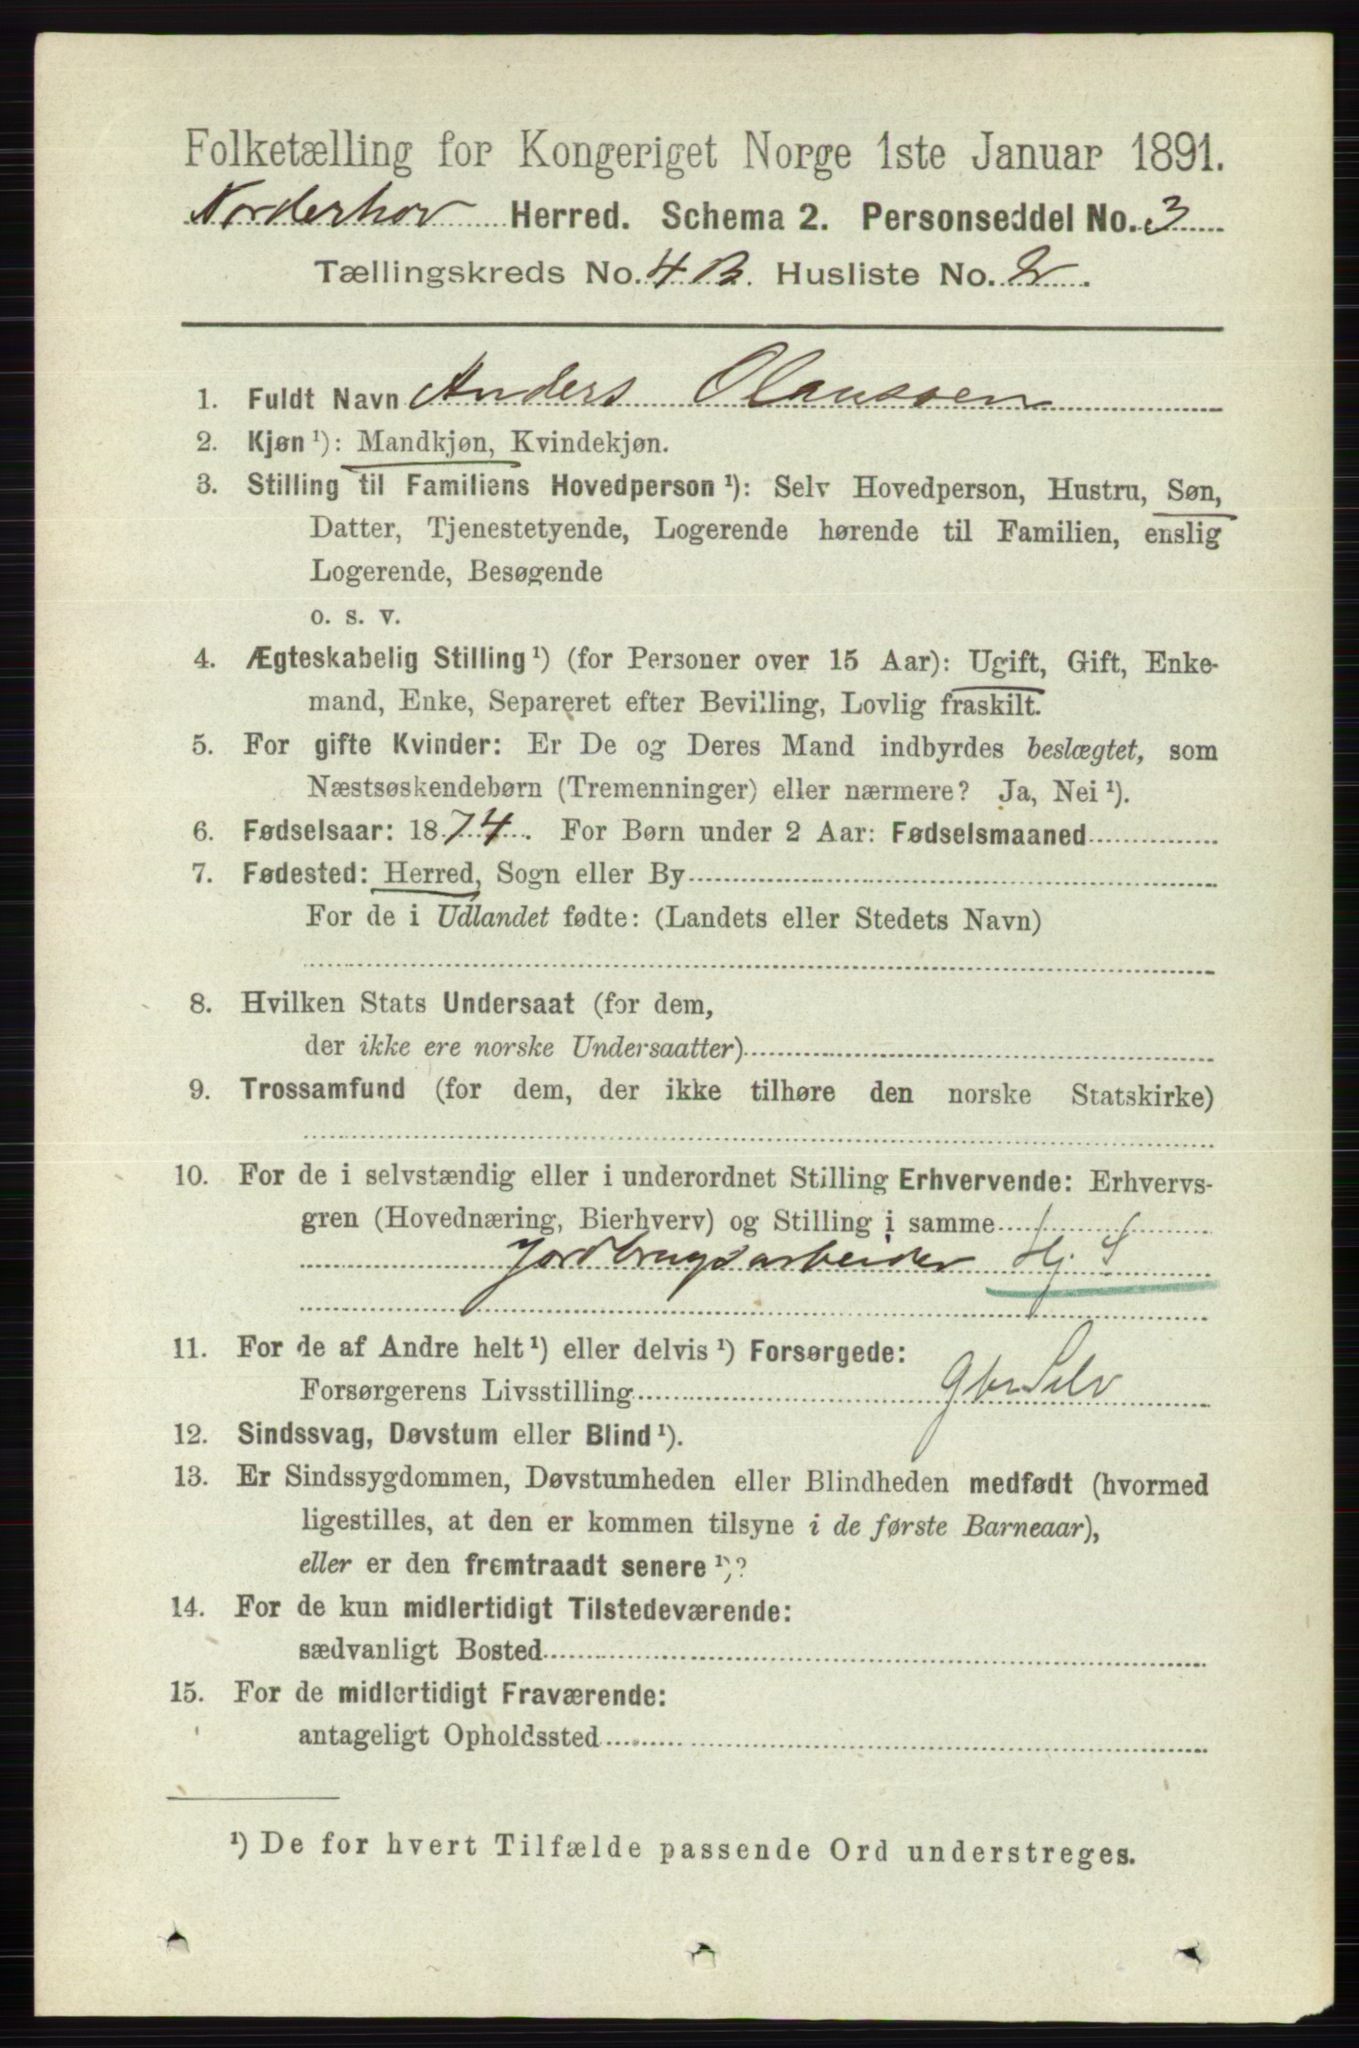 Folketælling for Kongeriget Norge 1ste Januar 1891.
Norderhov Herred. Schema 2. Personseddel No. 3
Tællingskreds No. 4 B. Husliste No. 2.
1. Fuldt Navn Anders Olaussen
2. Kjøn ¹): Mandkjøn, Kvindekjøn.
3. Stilling til Familiens Hovedperson ¹): Selv Hovedperson, Hustru, Søn,
Datter, Tjenestetyende, Logerende hørende til Familien, enslig
Logerende, Besøgende
o. s. v.
4. Ægteskabelig Stilling ¹) (for Personer over 15 Aar): Ugift, Gift, Enke-
mand, Enke, Separeret efter Bevilling, Lovlig fraskilt.
5. For gifte Kvinder: Er De og Deres Mand indbyrdes beslægtet, som
Næstsøskendebørn (Tremenninger) eller nærmere? Ja, Nei ¹).
6. Fødselsaar: 1874. For Børn under 2 Aar: Fødselsmaaned
7. Fødested: Herred, Sogn eller By
For de i Udlandet fødte: (Landets eller Stedets Navn)
8. Hvilken Stats Undersaat (for dem,
der ikke ere norske Undersaatter)
9. Trossamfund (for dem, der ikke tilhøre den norske Statskirke)
10. For de i selvstændig eller i underordnet Stilling Erhvervende: Erhvervs-
gren (Hovednæring, Bierhverv) og Stilling i samme
Jordbrugsarbeider Hj S
11. For de af Andre helt ¹) eller delvis ¹) Forsørgede:
Forsørgerens Livsstilling Gbr Selv
12. Sindssvag, Døvstum eller Blind ¹).
13. Er Sindssygdommen, Døvstumheden eller Blindheden medfødt (hvormed
ligestilles, at den er kommen tilsyne i de første Barneaar),
eller er den fremtraadt senere ¹)?
14. For de kun midlertidigt Tilstedeværende:
sædvanligt Bosted
15. For de midlertidigt Fraværende:
antageligt Opholdssted
¹) De for hvert Tilfælde passende Ord understreges.